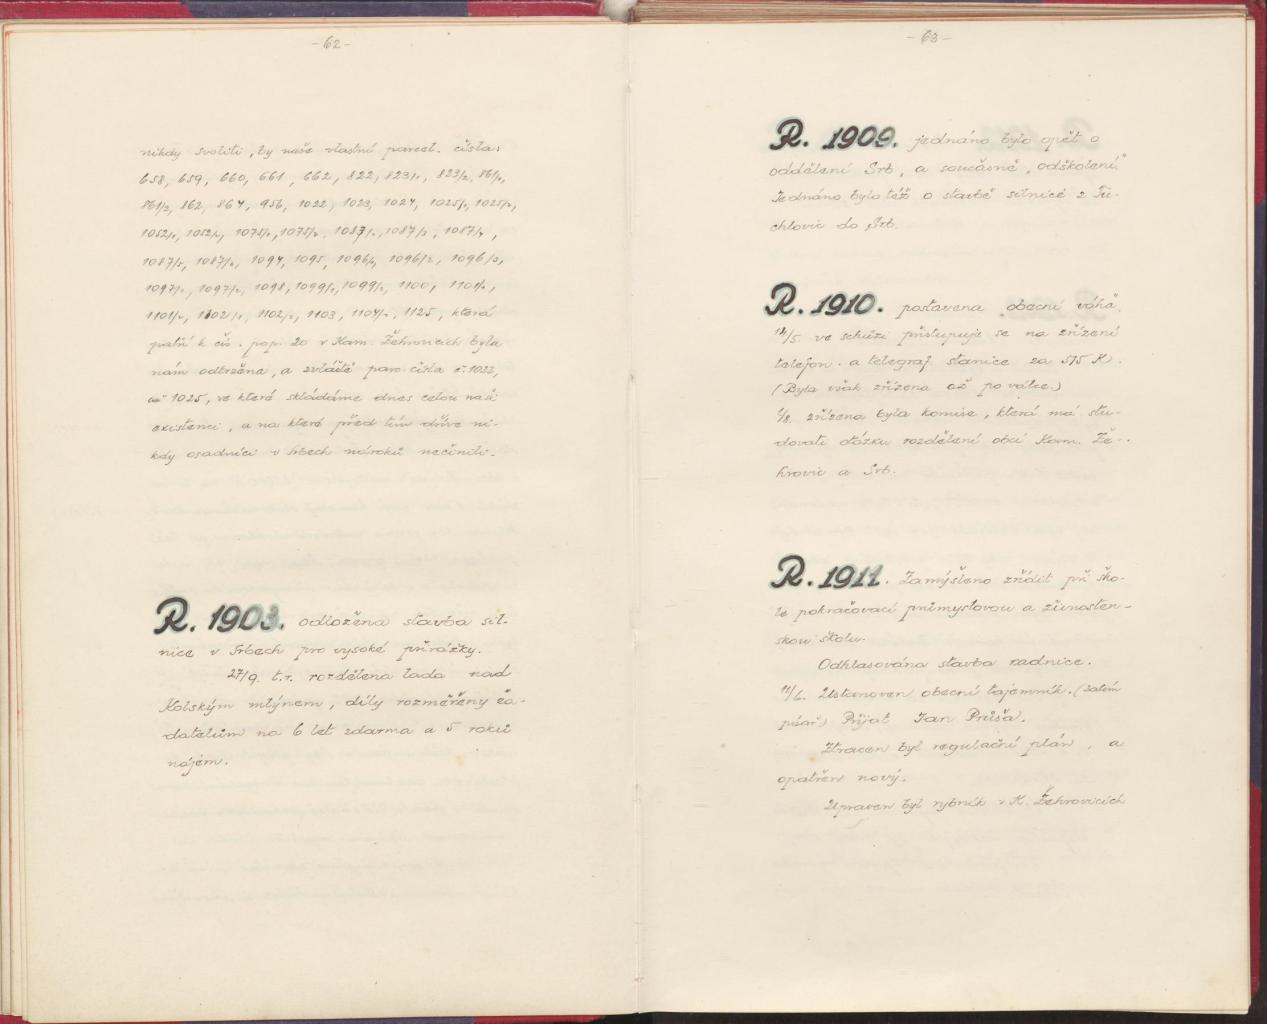 - 62 -
nikdy svoliti, by naše vlastní parcel. čísla:
658, 659, 660, 661, 662, 822, 823/1, 823/2, 861/1,
861/2, 862, 864, 956, 1022, 1023, 1024, 1025/1, 1025/2,
1052/1, 1052/2, 1075/1, 1075/2, 1087/1, 1087/3, 1087/4,
1087/5, 1087/6, 1094, 1095, 1096/1, 1096/2, 1096/3,
1097/1, 1097/2, 1098, 1099/1, 1099/2, 1100, 1101/1,
1101/2, 1102/1, 1102/2, 1103, 1104/2, 1125, která
patří k čís. pop. 20 v Kam. Žehrovicích byla
nám odtržena, a zvláště parc. čísla č. 1022,
až 1025, ve které skládáme dnes celou naši
existenci, a na které před tím dříve ni-
kdy osadníci v Srbech nároků nečinili.
R. 1903. odložena stavba sil-
nice v Srbech pro vysoké přirážky.
27/9. t.r. rozdělena lada nad
Kolským mlýnem, díly rozměřeny ža-
datelům na 6 let zdarma a 5 roků
nájem.
- 63 -
R. 1909. jednáno bylo opět o
oddělení Srb, a současně „odškolení."
Jednáno bylo též o stavbě silnice z Tu-
chlovic do Srb.
R. 1910. postavena obecní váha.
14/5. ve schůzi přistupuje se na zřízení
telefon. a telegraf. stanice za 575 K.
(Byla však zřízena až po válce.)
1/8. zřízena byla komise, která má stu-
dovati otázku rozdělení obcí Kam. Že-
hrovic a Srb.
R. 1911. Zamýšleno zřídit při ško-
le pokračovací průmyslovou a živnosten-
skou školu.
Odhlasována stavba radnice.
11/6. Ustanoven obecní tajemník. (zatím
písař) Přijat Jan Průša.
Ztracen byl regulační plán, a
opatřen nový.
Upraven byl rybník v K. Žehrovicích